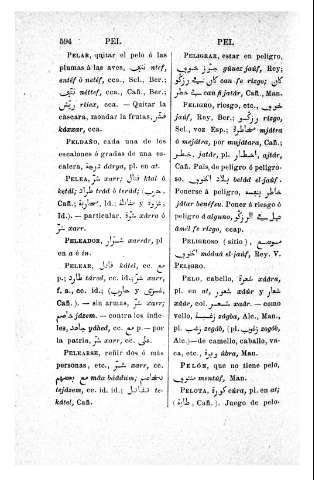 594 PEL PEL
PELAR, quitar el pelo ó las
plumas á las aves,
entéf ó netéf, cca., Sel., Ber.;
néttef, cca., Cañ., Ber.;
ریّش rüiex, cca. — Quitar la
cáscara, mondar la frutas, قشّر
káxxar, cca.
PELDAÑO, cada una de los
escalones ó gradas de una es-
calera, درجة dárya, pl. en at.
PELEA, شرّ xarr; قتال ktal ó
ketál; طراد trád ó terád; حرب,
Cañ., محاربة, Id.;
Id.). — particular,
شرّ xarr.
PELEADOR, شرّار xarrár, pl
en a ó in.
PELEAR, قاتل kátel, cc.
p.; طارد tárad, cc. id.; شرّ xarr,
f. a., cc. id.;
Cañ.). — sin armas, شرّ xarr;
خاصم jázem. — contra los infie-
les, جاهد yáhed, cc. ب p. — por
la patria, شرّ xarr, cc. على.
PELEARSE, reñir dos ó más
personas, etc., شرّ xarr, cc.
مع بعضهم máa báddium; تخاصم
tejázem, cc. id. id.; تقاتل te-
kátel, Cañ.
PELIGRAR, estar en peligro,
yáuez jaúf, Rey;
كان can fe rizgo; Sel., Ber.;
can fi jatár, Cañ., Man.
PELIGRO, riesgo, etc., خوف
jaúf, Rey, Ber.; رزگو rizgo,
Sel., voz Esp.; مخاطرة mjátra
ó mejátra, por mujátara, Cañ.;
خطر jatár, pl. أخطار ajtár,
Cañ. País de peligro ó peligro-
so, بلاد الخوف belád el-jaúf.
Ponerse á peligro, خاطر بنفسه
játar benéfsu. Poner á riesgo ó
peligro á alguno,
ámel fe rizgo, cca.
PELIGROSO (sitio), موضع
الخوف módaä el-jaúf, Rey. V.
PELIGRO.
PELO, cabello, شعرة xáâra,
pl. en at, شعور y شعار
xáâr, col. شعر xaâr. — como
vello, زغبة zágba, Alc., Man.,
pl. زغب zegáb, (pl. زغوب zogób,
Alc.) — de camello, caballo, va-
ca, etc., وبرة úbra, Man.
PELÓN, que no tiene pelo,
منتوف mentúf, Man.
PELOTA, كورة cúra, pl. en at;
(طابة, Cañ.). Juego de pelo-